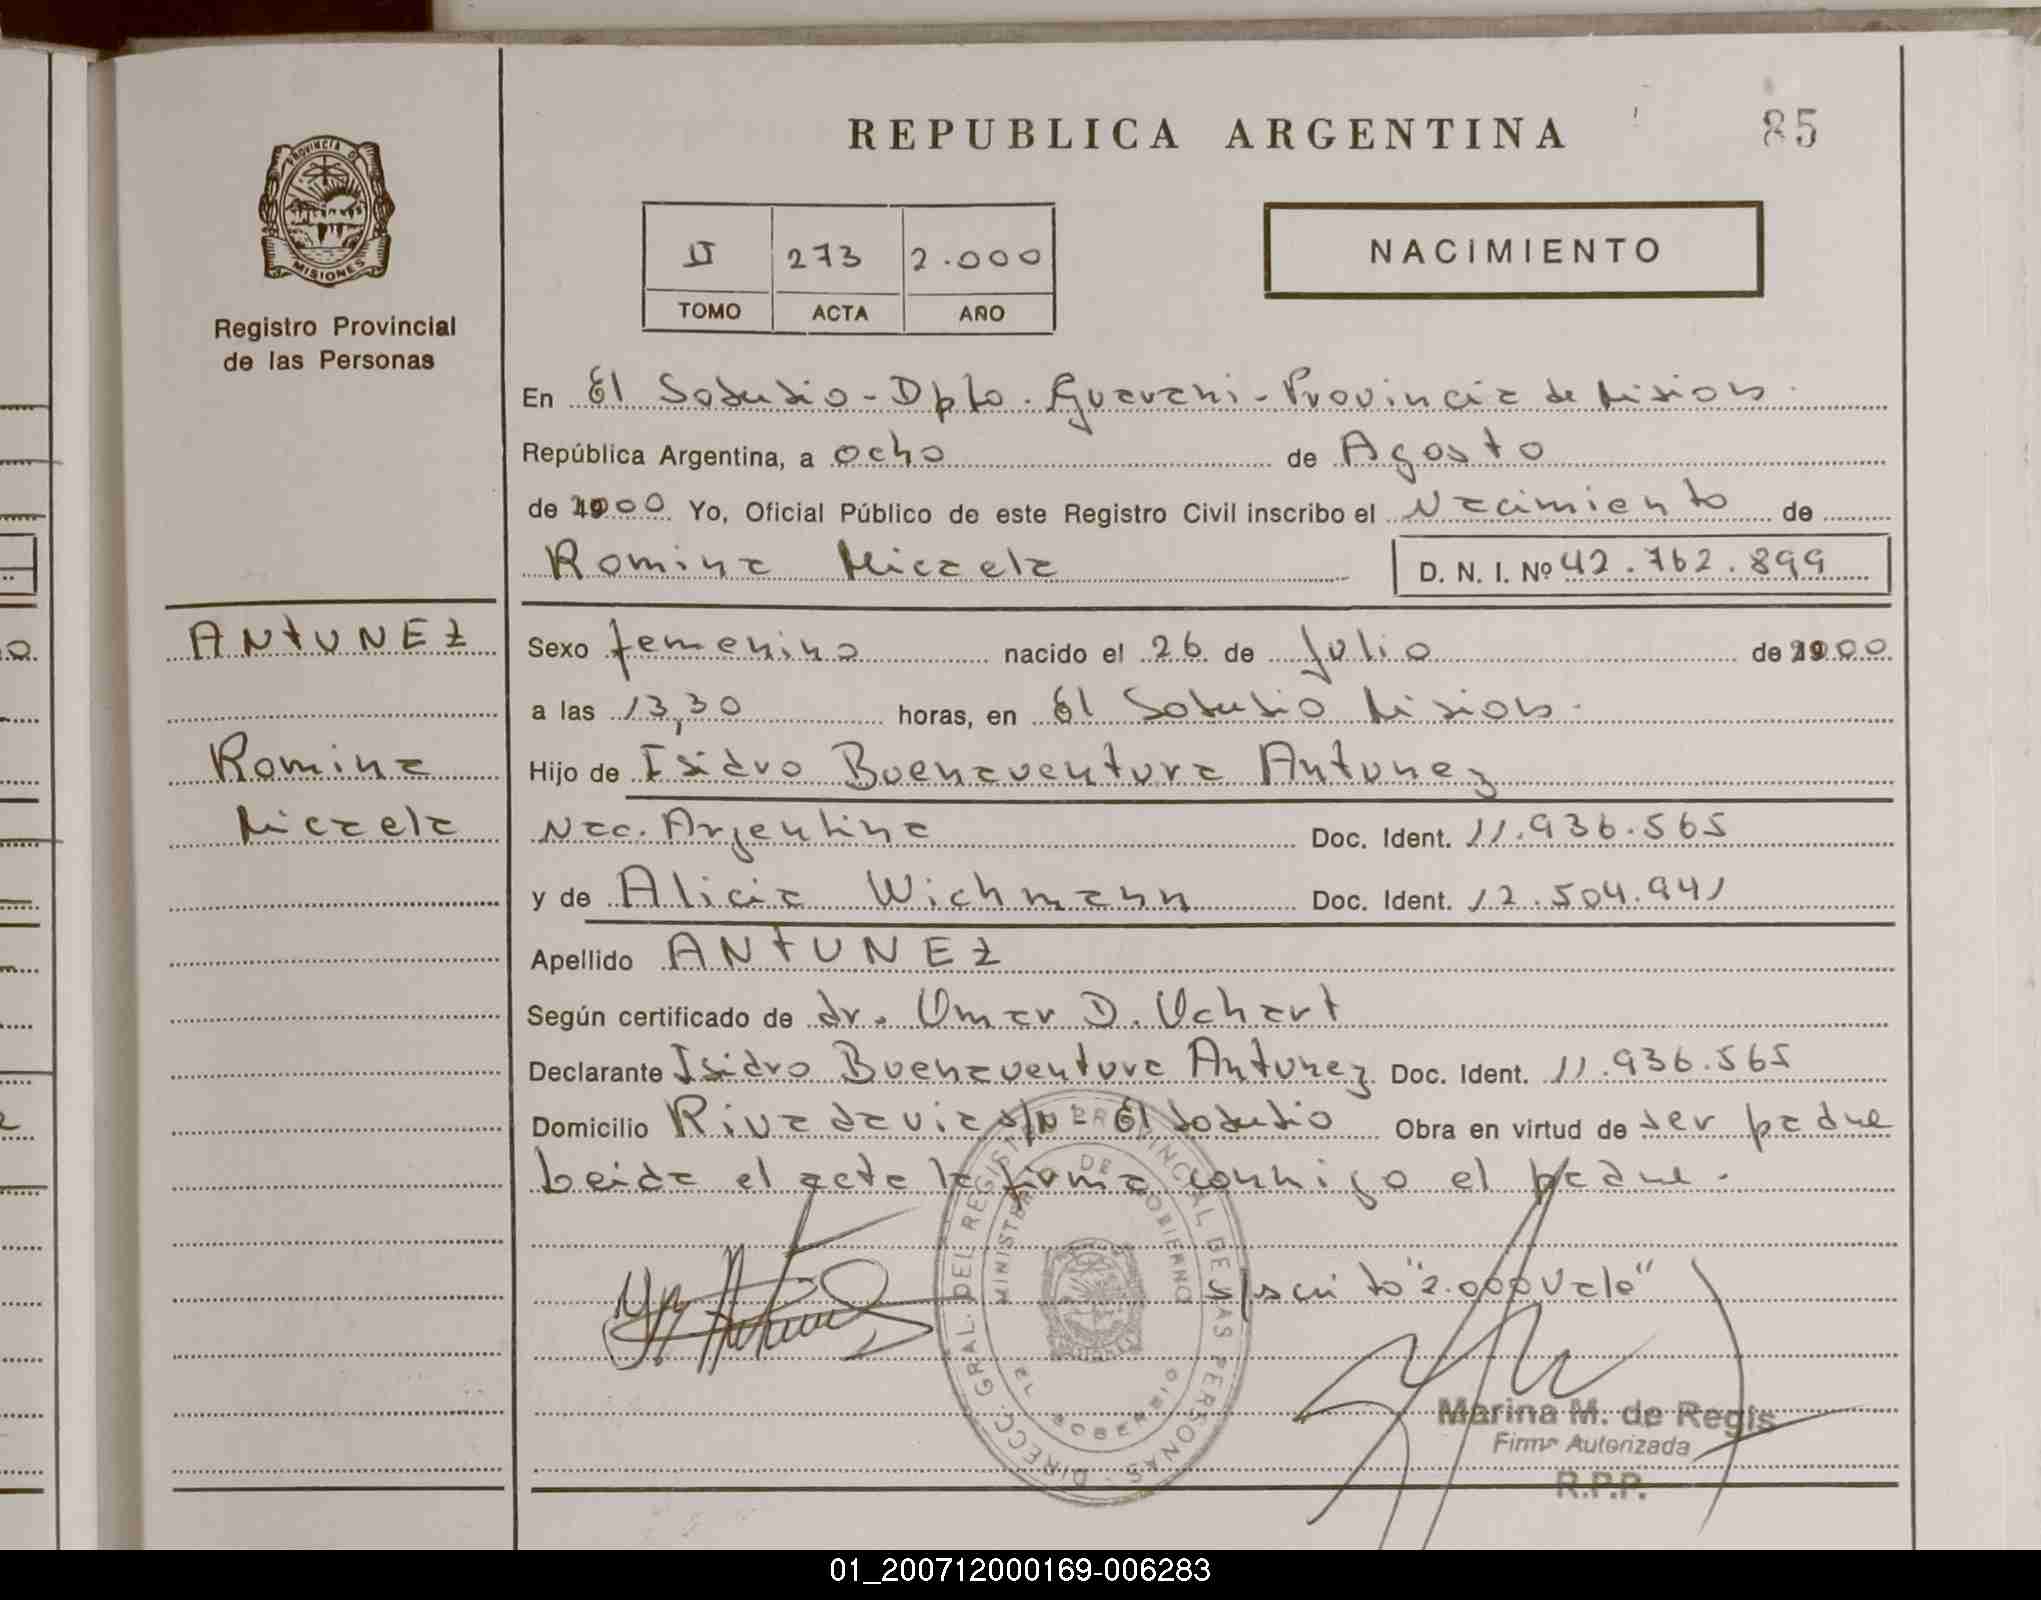 REPUBLICA ARGENTINA
85
PROVINCIA DE
MISIONES
Registro Provincial
de las Personas
II 273 2.000
TOMO ACTA AÑO
NACIMIENTO
En El Soberbio - Dpto. Guarani - Provincia de Misiones.
República Argentina, a ocho de Agosto
de 2000 Yo, Oficial Público de este Registro Civil inscribo el Nacimiento de
Romina Micaela D. N. I. Nº 42.762.899
ANTUNEZ
Romina
Micaela
Sexo femenino nacido el 26 de Julio de 2000
a las 13,30 horas, en El Soberbio Misiones.
Hijo de Isidro Buenaventura Antunez
Nac. Argentina Doc. Ident. 11.936.565
y de Alicia Wichmann Doc. Ident. 12.504.941
Apellido ANTUNEZ
Según certificado de dr. Omar D. Uchart
Declarante Isidro Buenaventura Antunez Doc. Ident. 11.936.565
Domicilio Rivadavia s/n El Soberbio Obra en virtud de ser padre
Leida el acta la firma conmigo el padre.
s/scrito "2.000 Vale"
DIRECC. GRAL. DEL REGISTRO PROVINCIAL DE LAS PERSONAS
MINISTERIO DE GOBIERNO
Marina M. de Regis
Firma Autorizada
R.P.P.
01_200712000169-006283